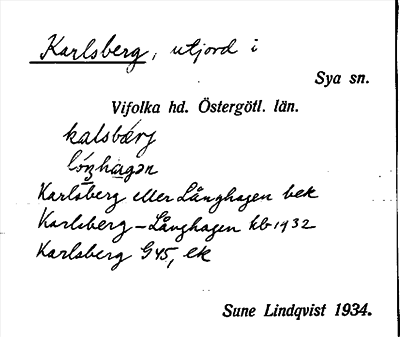 Karlsberg, utjord i
Sya sn.
Vifolka hd. Östergötl. län.
kalsbærj
lóŋhagən
Karlsberg eller Långhagen bek
Karlsberg – Långhagen kb 1932
Karlsberg G45, ek
Sune Lindqvist 1934.